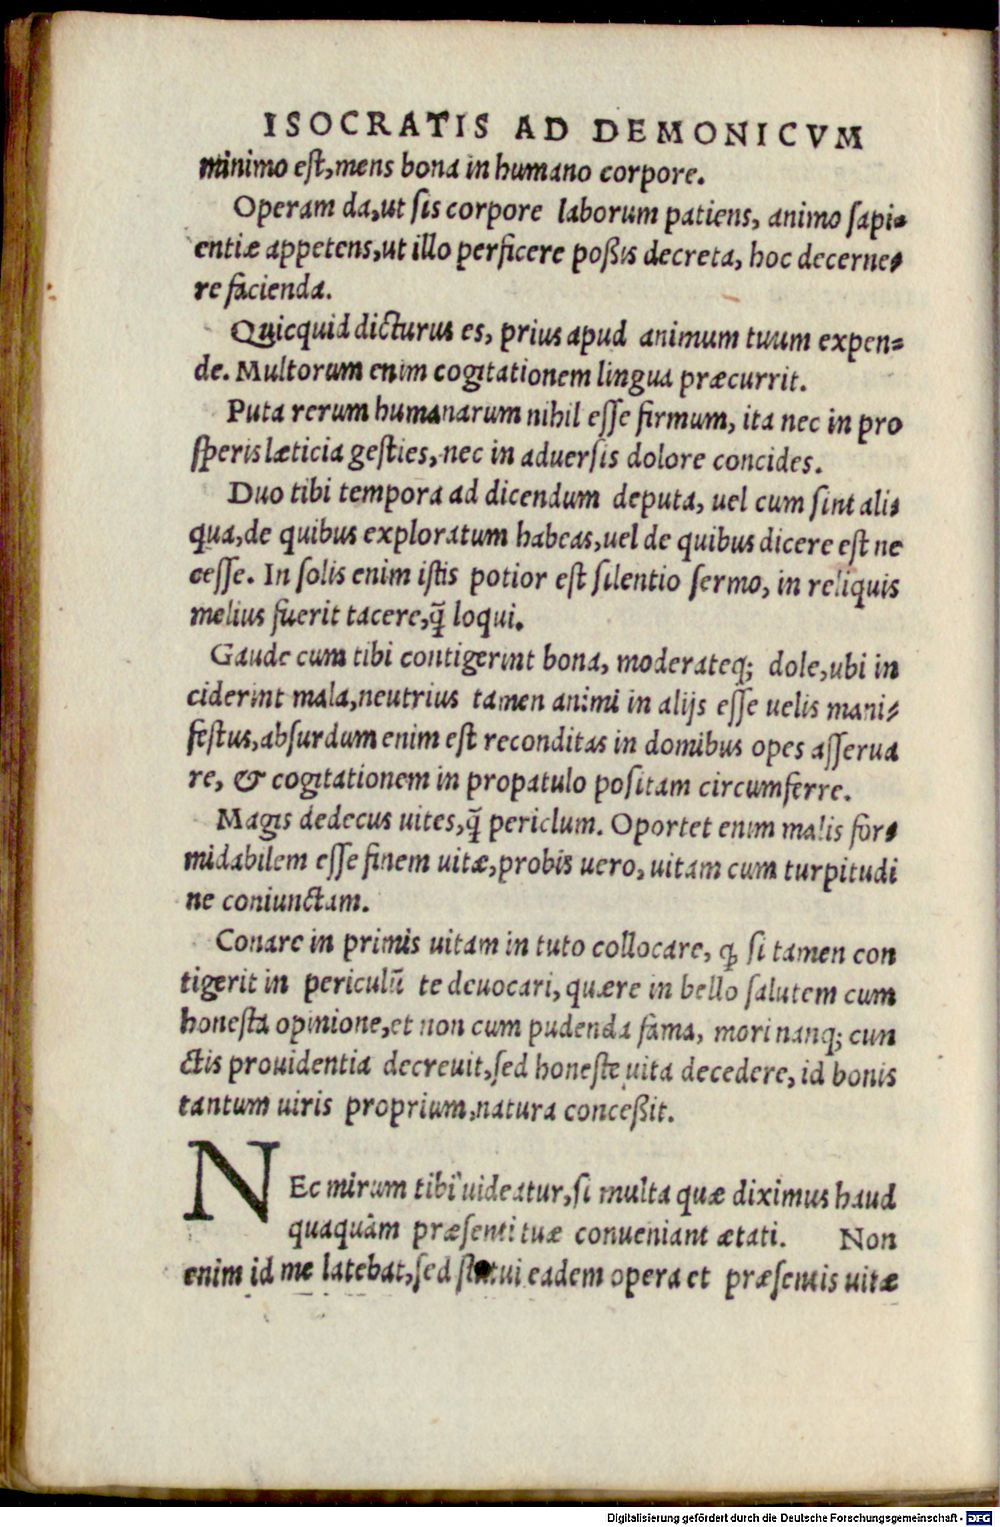 ISOCRATIS AD DEMONICVM
minimo est, mens bona in humano corpore.
Operam da, ut sis corpore laborum patiens, animo sapi-
entiæ appetens, ut illo perficere poßis decreta, hoc decerne-
re facienda.
Quicquid dicturus es, prius apud animum tuum expen-
de. Multorum enim cogitationem lingua præcurrit.
Puta rerum humanarum nihil esse firmum, ita nec in pro
speris læticia gesties, nec in aduersis dolore concides.
Duo tibi tempora ad dicendum deputa, uel cum sint ali-
qua, de quibus exploratum habeas, uel de quibus dicere est ne
cesse. In solis enim istis potior est silentio sermo, in reliquis
melius fuerit tacere, q̃ loqui.
Gaude cum tibi contigerint bona, moderateq; dole, ubi in
ciderint mala, neutrius tamen animi in alijs esse uelis mani-
festus, absurdum enim est reconditas in domibus opes asserua
re, & cogitationem in propatulo positam circumferre.
Magis dedecus uites, q̃ periclum. Oportet enim malis for-
midabilem esse finem uitæ, probis uero, uitam cum turpitudi
ne coniunctam.
Conare in primis uitam in tuto collocare, ꝙ si tamen con
tigerit in periculũ te deuocari, quære in bello salutem cum
honesta opinione, et non cum pudenda fama, mori nanq; cun
ctis prouidentia decreuit, sed honeste uita decedere, id bonis
tantum uiris proprium, natura conceßit.
NEc mirum tibi uideatur, si multa quæ diximus haud
quaquàm præsenti tuæ conueniant ætati. Non
enim id me latebat, sed statui eadem opera et præsentis uitæ
Digitalisierung gefördert durch die Deutsche Forschungsgemeinschaft - DFG